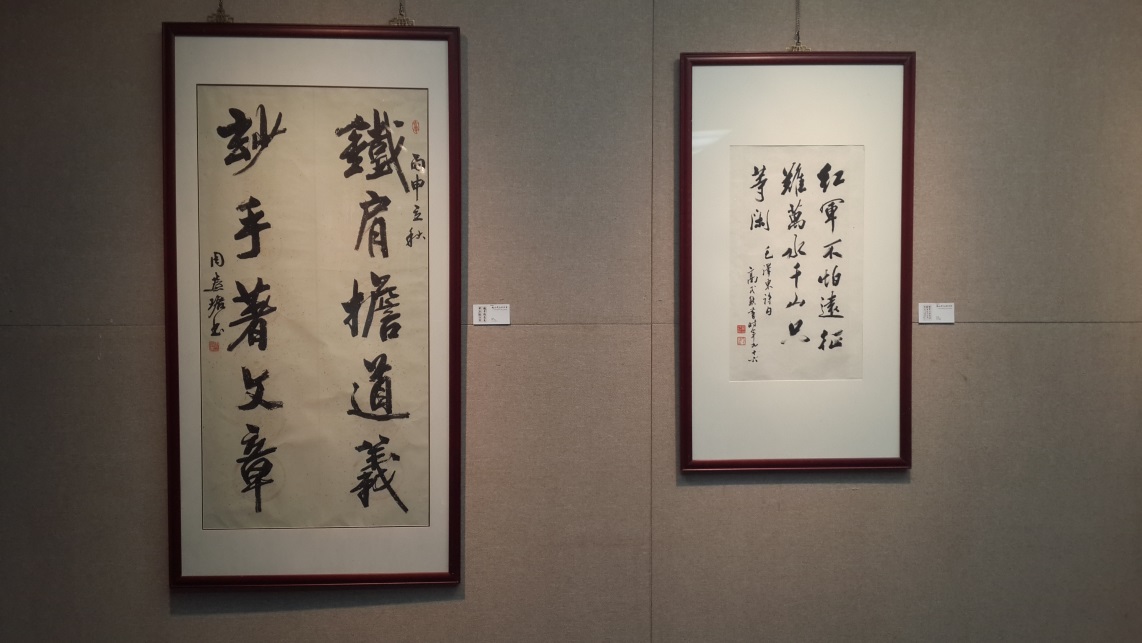 鐵肩擔道義
丙申立秋
妙手著文章
周
紅軍不怕遠征
難萬水千山只
等閑
毛澤東詩句